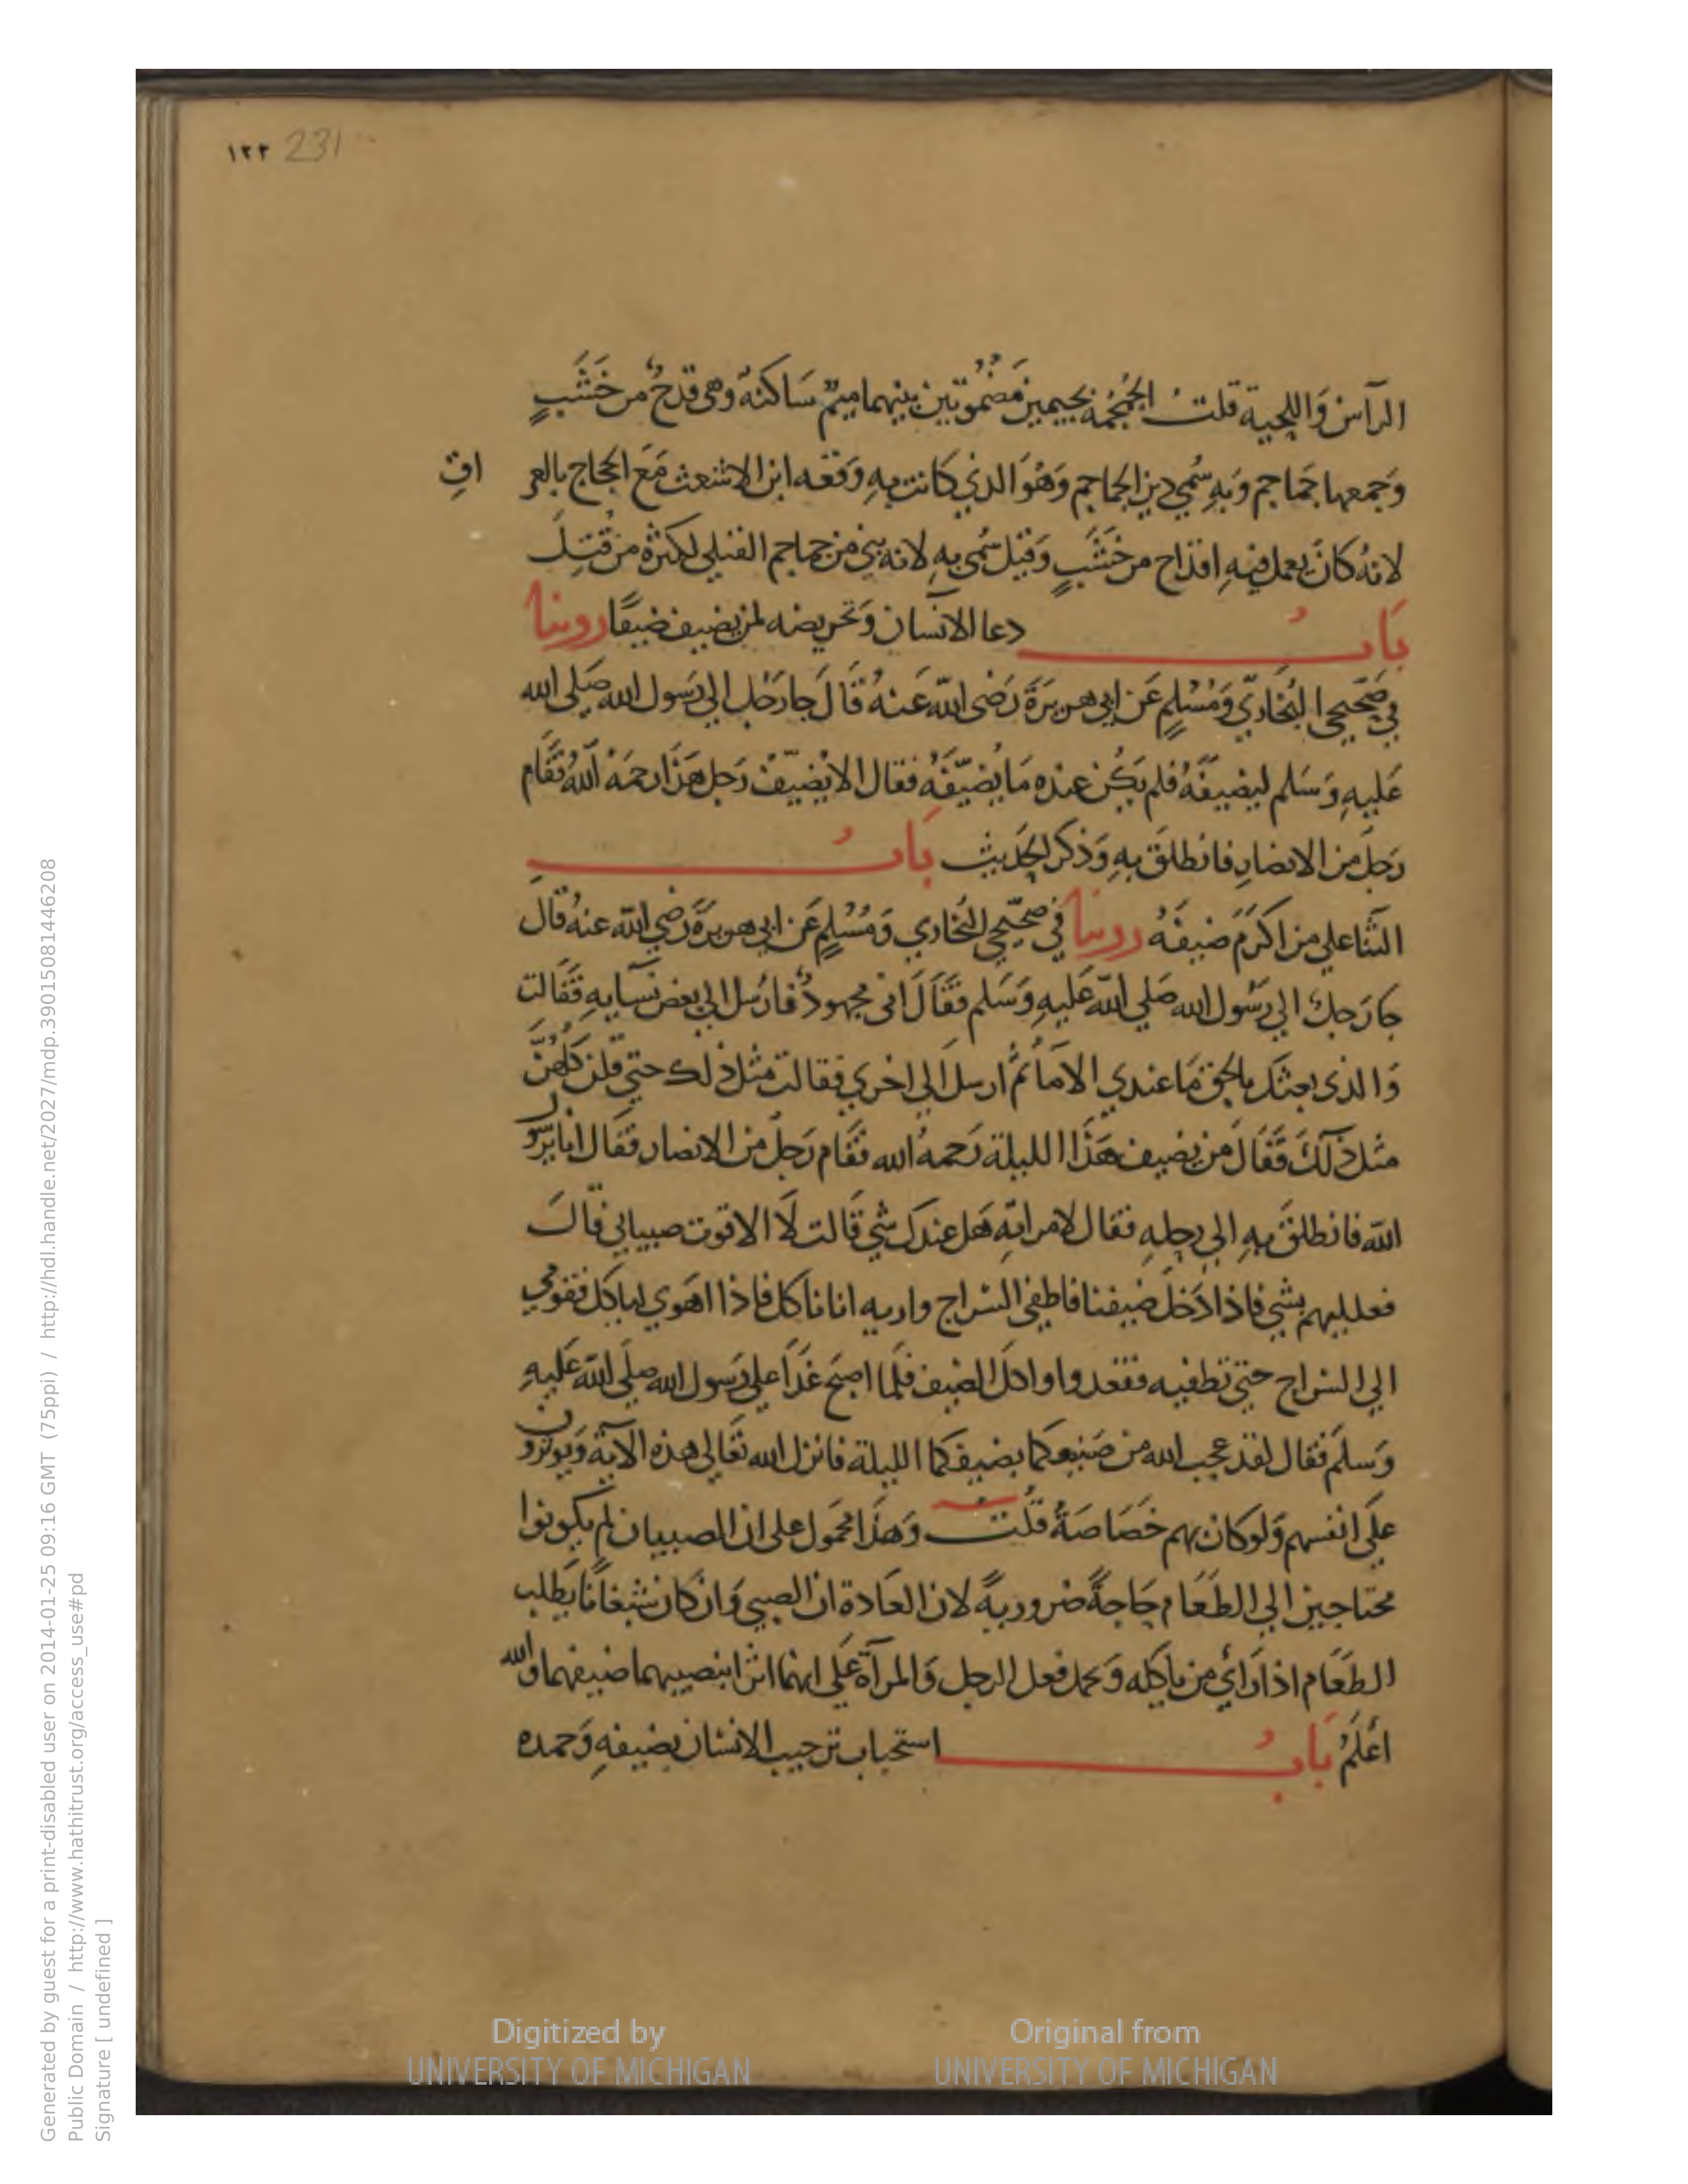 ١٢٢ 231
الرأس وَاللحية قلت الجُمْجُمَة بجيمين مَضمُومَتين بينهما ميمٌ سَاكنة وهى قدحٌ من خَشَبٍ
وَجمعها جَمَاجم وَبهِ سُمي دير الجماجم وَهُوَ الذي كَانت بهِ وَقعَه ابن الاشعث مَعَ الحجاج بالعر اقِ
لانهُ كانَ يعمل فيهِ اقداح من خَشَبٍ وَقيل سُمى بهِ لانه بني من جماجم القتلي لكثرة من قُتِلَ
بَابُ دعا الانسان وَتحريضه لمن يضيف ضيفًا روينا
في صَحيحي البُخَاريّ وَمُسْلِمٍ عَن ابي هريرَةَ رَضى اللّه عَنهُ قَالَ جا رَجُل الي رَسول الله صَلى الله
عَليهِ وَسَلم ليضيفَهُ فلم يَكُن عنده مَا يُضيّفهُ فقال الا يُضيّف رَجل هَذا رحمَهُ اللهُ فقَام
رَجل من الانصارِ فانطلقَ بهِ وَذكر الحَديث بَابُ
الثَّنا علي من اكرَمَ ضيفَهُ روينا في صحيحي البُخاري وَمُسْلِمٍ عَن ابي هريرَةَ رَضي اللّه عنهُ قال
جا رَجل الي رَسُول الله صَلي اللّه عَليهِ وَسَلم فقَالَ انى مجهودٌ فارسَل الي بعض نسَايهِ فقَالت
وَالذى بعثكَ بالحق مَا عندي الا مَا ثُمَّ ارسل الي اخري فقالت مثل ذلك حتي قلن كلهُنَّ
مثل ذلكَ فقَالَ من يضيف هَذا الليلة رَحمهُ الله فقَام رَجل من الانصار فقَال انا يرَسو ل
اللّه فانطلقَ بهِ الي رحلِهِ فقال لامراتِهِ هَل عندك شي قَالت لَا الا قوت صبياني قالَ
فعلليهم بشي فاذا دَخل ضيفنا فاطفي السراج واريه انا ناكل فاذا اهَوي لياكل فقومي
الي السراج حتي تطفيه فقعدوا واكل الضيف فلَما اصبَح غدَا علي رَسول الله صلَي اللّه عَليهِ
وَسلمَ فقال لقد عجب الله من صَنيعكما بضيفكما الليلة فانزل الله تعَالى هذه الاية وَيوثرو ن
علَى انفسهم وَلو كان بهم خَصَاصَةٌ قُلت وَهذا محمول على ان الصبيان لم يكونوا
محتاجين الي الطعَام حَاجةً ضروريةً لان العَادة ان الصبي وَان كان شبعَانًا يَطلب
الطعَام اذا رَائ من ياكله وَيحمل فعل الرجل وَالمرأة عَلى انهما اثرا بنصيبهما ضيفهما والله
اعْلَمُ بَابُ استحباب ترحيب الانسان بضيفهِ وَحمده
Generated by guest for a print-disabled user on 2014-01-25 09:16 GMT (75ppi) / http://hdl.handle.net/2027/mdp.39015081446208
Public Domain / http://www.hathitrust.org/access_use#pd
Signature [ undefined ]
Digitized by
UNIVERSITY OF MICHIGAN
Original from
UNIVERSITY OF MICHIGAN